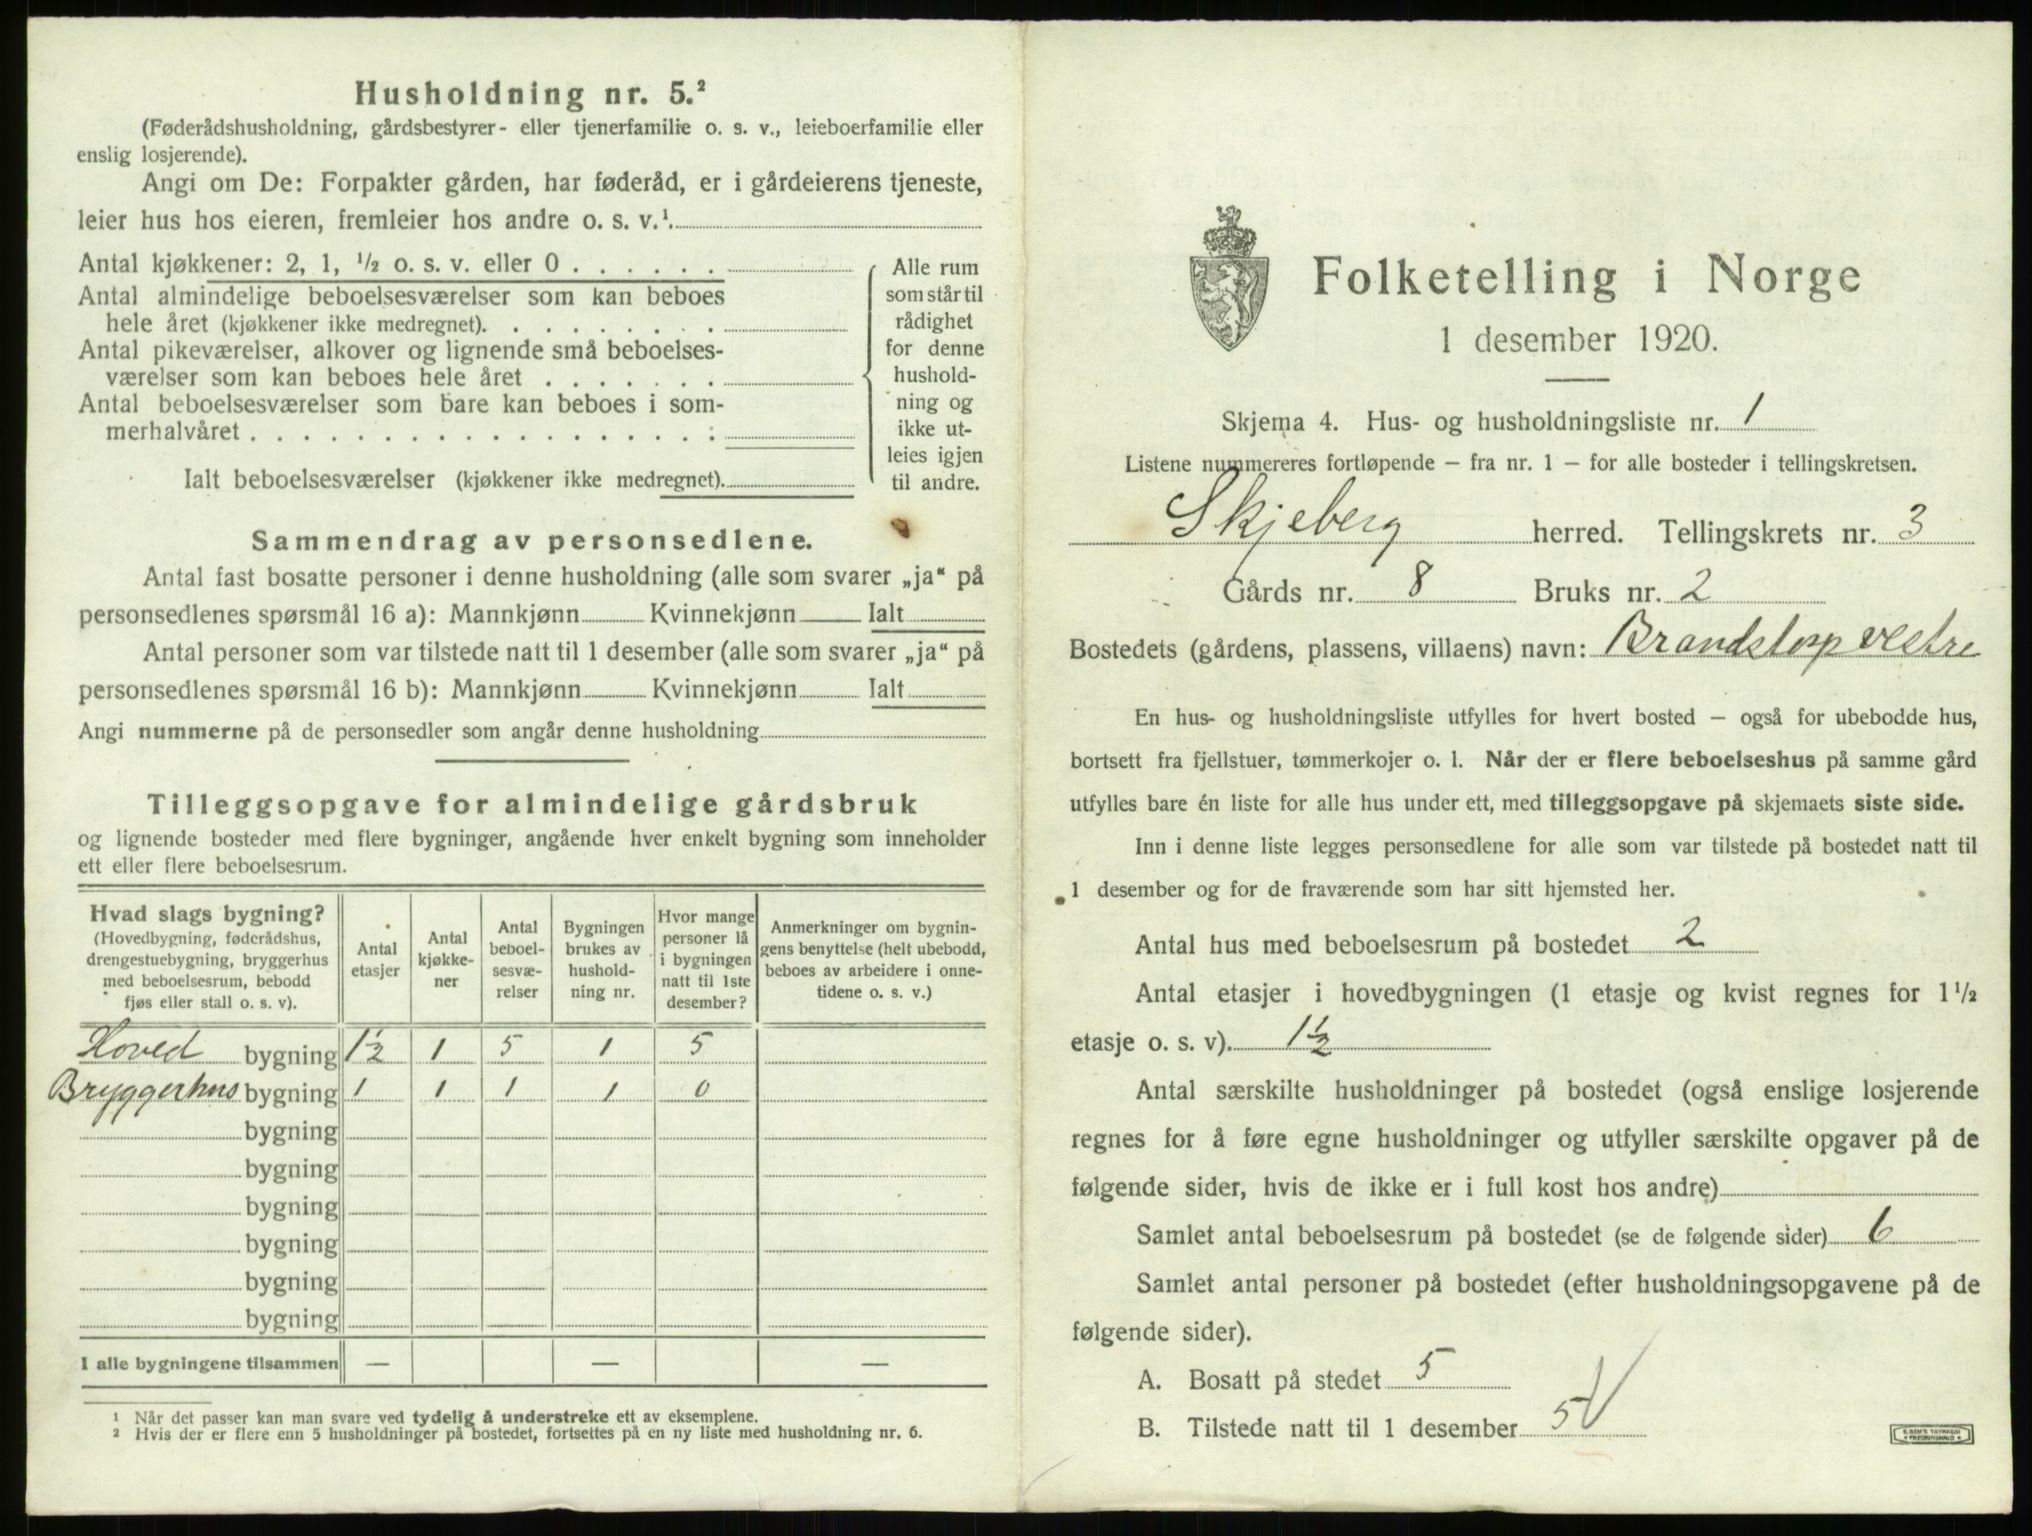 Husholdning nr. 5.²
(Føderådshusholdning, gårdsbestyrer- eller tjenerfamilie o. s. v., leieboerfamilie eller
enslig losjerende).
Angi om De: Forpakter gården, har føderåd, er i gårdeierens tjeneste,
leier hus hos eieren, fremleier hos andre o. s. v.¹.
Antal kjøkkener: 2, 1, ½ o. s. v. eller 0 . . . . . .
Antal almindelige beboelsesværelser som kan beboes
hele året (kjøkkener ikke medregnet). . . . . . . . .
Antal pikeværelser, alkover og lignende små beboelses-
værelser som kan beboes hele året . . . . . . .
Antal beboelsesværelser som bare kan beboes i som-
merhalvåret . . . . . . . . . . . . . . . . . . :
Ialt beboelsesværelser (kjøkkener ikke medregnet).
Alle rum
som står til
rådighet
for denne
hushold-
ning og
ikke ut-
leies igjen
til andre.
Sammendrag av personsedlene.
Antal fast bosatte personer i denne husholdning (alle som svarer „ja“ på
personsedlenes spørsmål 16 a): Mannkjønn Kvinnekjønn Ialt
Antal personer som var tilstede natt til 1 desember (alle som svarer „ja“ på
personsedlenes spørsmål 16 b): Mannkjønn Kvinnekjønn Ialt
Angi nummerne på de personsedler som angår denne husholdning
Tilleggsopgave for almindelige gårdsbruk
og lignende bosteder med flere bygninger, angående hver enkelt bygning som inneholder
ett eller flere beboelsesrum.
Hvad slags bygning?
(Hovedbygning, føderådshus,
drengestuebygning, bryggerhus
med beboelsesrum, bebodd
fjøs eller stall o. s. v).
Antal
etasjer
Antal
kjøkke-
ner
Antal
beboel-
sesvæ-
relser
Bygningen
brukes av
hushold-
ning nr.
Hvor mange
personer lå
i bygningen
natt til 1ste
desember?
Anmerkninger om bygnin-
gens benyttelse (helt ubebodd,
beboes av arbeidere i onne-
tidene o. s. v.)
Hoved bygning 1½ 1 5 1 5
Bryggerhus bygning 1 1 1 1 0
bygning
bygning
bygning
bygning
bygning
bygning
I alle bygningene tilsammen — — —
¹ Når det passer kan man svare ved tydelig å understreke ett av eksemplene.
² Hvis der er flere enn 5 husholdninger på bostedet, fortsettes på en ny liste med husholdning nr. 6.
Folketelling i Norge
1 desember 1920.
Skjema 4. Hus- og husholdningsliste nr. 1
Listene nummereres fortløpende – fra nr. 1 – for alle bosteder i tellingskretsen.
Skjeberg herred. Tellingskrets nr. 3
Gårds nr. 8 Bruks nr. 2
Bostedets (gårdens, plassens, villaens) navn: Brandstorp vestre
En hus- og husholdningsliste utfylles for hvert bosted – også for ubebodde hus,
bortsett fra fjellstuer, tømmerkojer o. l. Når der er flere beboelseshus på samme gård
utfylles bare én liste for alle hus under ett, med tilleggsopgave på skjemaets siste side.
Inn i denne liste legges personsedlene for alle som var tilstede på bostedet natt til
1 desember og for de fraværende som har sitt hjemsted her.
Antal hus med beboelsesrum på bostedet 2
Antal etasjer i hovedbygningen (1 etasje og kvist regnes for 1½
etasje o. s. v). 1½
Antal særskilte husholdninger på bostedet (også enslige losjerende
regnes for å føre egne husholdninger og utfyller særskilte opgaver på de
følgende sider, hvis de ikke er i full kost hos andre)
Samlet antal beboelsesrum på bostedet (se de følgende sider) 6
Samlet antal personer på bostedet (efter husholdningsopgavene på de
følgende sider).
A. Bosatt på stedet 5
B. Tilstede natt til 1 desember 5